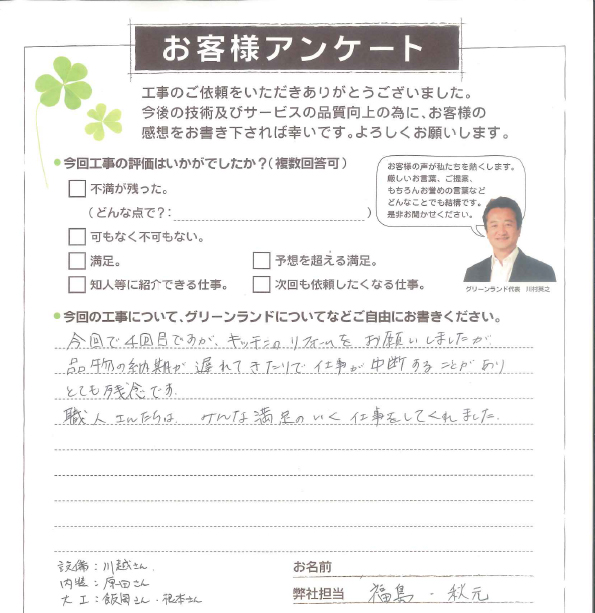 お客様アンケート
工事のご依頼をいただきありがとうございました。
今後の技術及びサービスの品質向上の為に、お客様の
感想をお書き下されば幸いです。よろしくお願いします。
•今回工事の評価はいかがでしたか?(複数回答可)
不満が残った。
(どんな点で?: )
可もなく不可もない。
満足。 予想を超える満足。
知人等に紹介できる仕事。 次回も依頼したくなる仕事。
お客様の声が私たちを熱くします。
厳しいお言葉、ご提案、
もちろんお誉めの言葉など
どんなことでも結構です。
是非お聞かせください。
グリーンランド代表 川村英之
•今回の工事について、グリーンランドについてなどご自由にお書きください。
今回で4回目ですが、キッチンのリフォームをお願いしましたが
品物の納期が遅れてきたりで仕事が中断することがあり
とても残念です.
職人さんたちは、みんな満足のいく仕事をしてくれました.
設備:川越さん
内装:原田さん
大工:飯岡さん・根本さん
お名前
弊社担当 福島・秋元